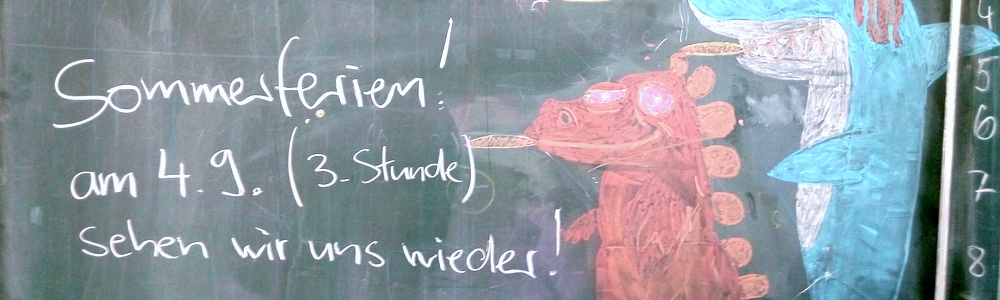 Sommerferien!
am 4.9. (3. Stunde)
sehen wir uns wieder!
4
5
6
7
8